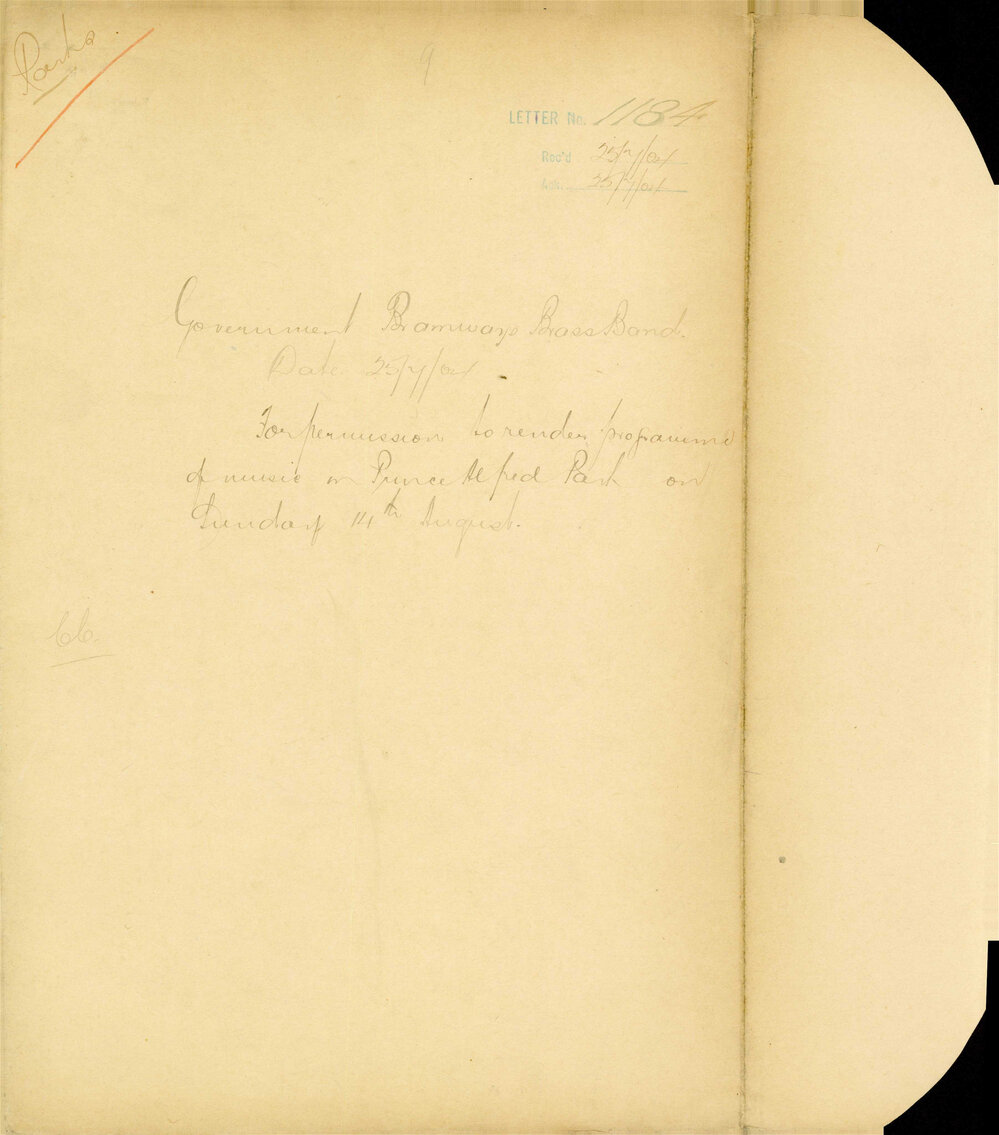 Parks
9
LETTER No. 1184
Rec'd 25/7/04
Ack. 25/7/04
Government Tramways Brass Band.
Date 25/7/04
For permission to render programme
of music in Prince Alfred Park on
Sunday 14th August.